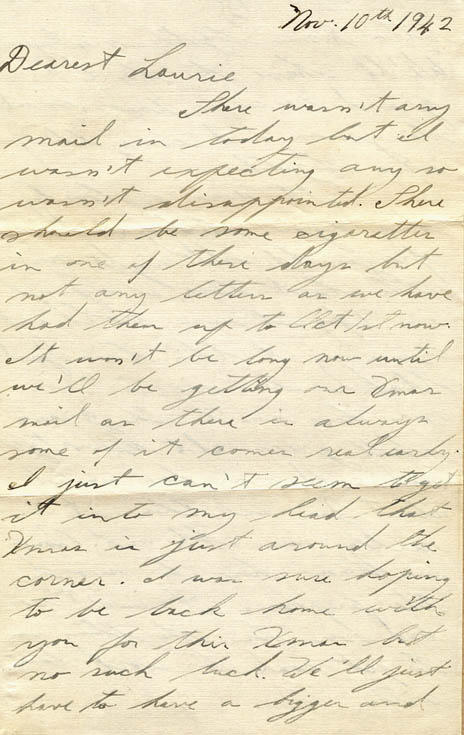 Nov. 10th 1942
Dearest Laurie
There wasn't any
mail in today but I
wasn't expecting any so
wasn't disappointed. There
should be some cigarettes
in one of these days but
not any letters as we have
had them up to Oct 1st now.
It won't be long now until
we'll be getting our Xmas
mail as there is always
some of it comes real early.
I just can't seem to get
it into my head that
Xmas is just around the
corner. I was sure hoping
to be back home with
you for this Xmas but
no such luck. We'll just
have to have a bigger and